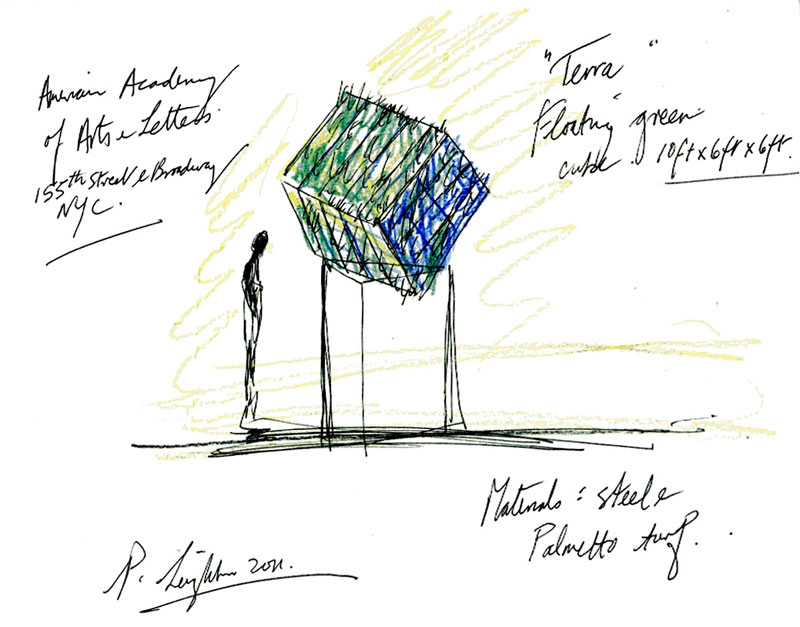 American Academy
of Arts & Letters.
155th Street & Broadway
NYC.
"Terra"
Floating green
cube. 10ft x 6ft x 6ft.
Materials: steel &
Palmetto turf.
P. Leighton 2011.